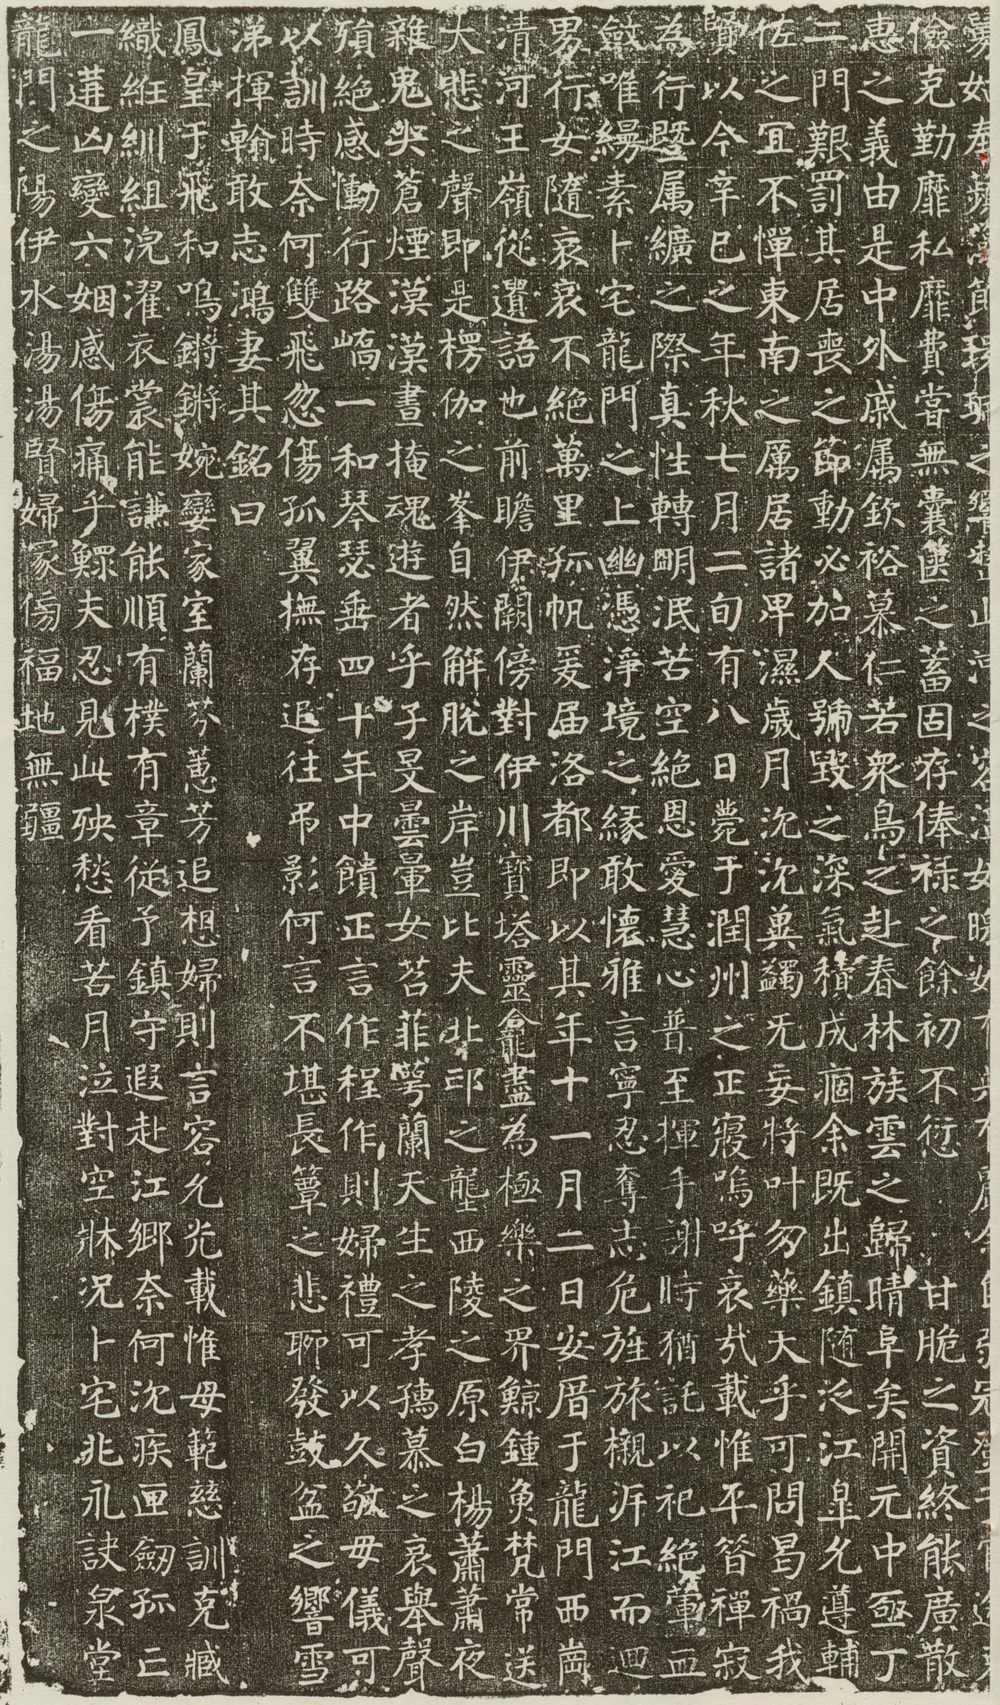 之
儉克勤靡私靡費嘗無囊篋之蓄固存俸祿之餘初不愆甘脆之資終能廣散
惠之義由是中外戚属欽裕慕仁若衆鳥之赴春林族雲之歸晴阜矣開元中亟丁
二門艱罰其居喪之節動必加人號毀之深氣積成痼余既出鎮随泛江皐允遵輔
佐之宜不憚東南之厲居諸卑濕歲月沈沈冀蠲无妄將叶勿藥天乎可問曷禍我
賢以今辛巳之年秋七月二旬有八日薨于潤州之正寢嗚呼哀哉載惟平昝禪寂
為行暨属纊之際真性轉明泯苦空絶恩愛慧心普至揮手謝時猶託以祀絶葷血
斂唯縵素卜宅龍門之上幽憑淨境之緣敢懷雅言寧忍奪志危旌旅櫬泝江而迴
男行女隨哀哀不絶萬里孤帆爰届洛都即以其年十一月二日安厝于龍門西崗
清河王嶺從遺語也前瞻伊闕傍對伊川寶塔靈龕盡為極樂之界鯨鍾魚梵常送
大悲之聲即是楞伽之峯自然解脫之岸豈比夫北邙之壟西陵之原白楊蕭蕭夜
雜鬼哭蒼煙漠漠晝掩魂遊者乎子旻曇暈女苕菲蕚蘭天生之孝孺慕之哀舉聲
殞絶感慟行路嶠一和琴瑟垂四十年中饋正言作程作則婦禮可以久敬毋儀可
以訓時奈何雙飛忽傷孤翼撫存追往弔影何言不堪長簟之悲聊發鼓盆之響雪
涕揮翰敢志鴻妻其銘曰
鳳皇于飛和鳴鏘鏘婉孌家室蘭芬蕙芳追想婦則言容允光載惟母範慈訓克臧
織紝紃組浣濯衣裳能謙能順有樸有章從予鎮守遐赴江鄉奈何沈疾匣劒孤亡
一遘凶變六姻感傷痛乎鰥夫忍見此殃愁看苦月泣對空牀况卜宅兆永訣泉堂
龍門之陽伊水湯湯賢婦冢傍福地無疆